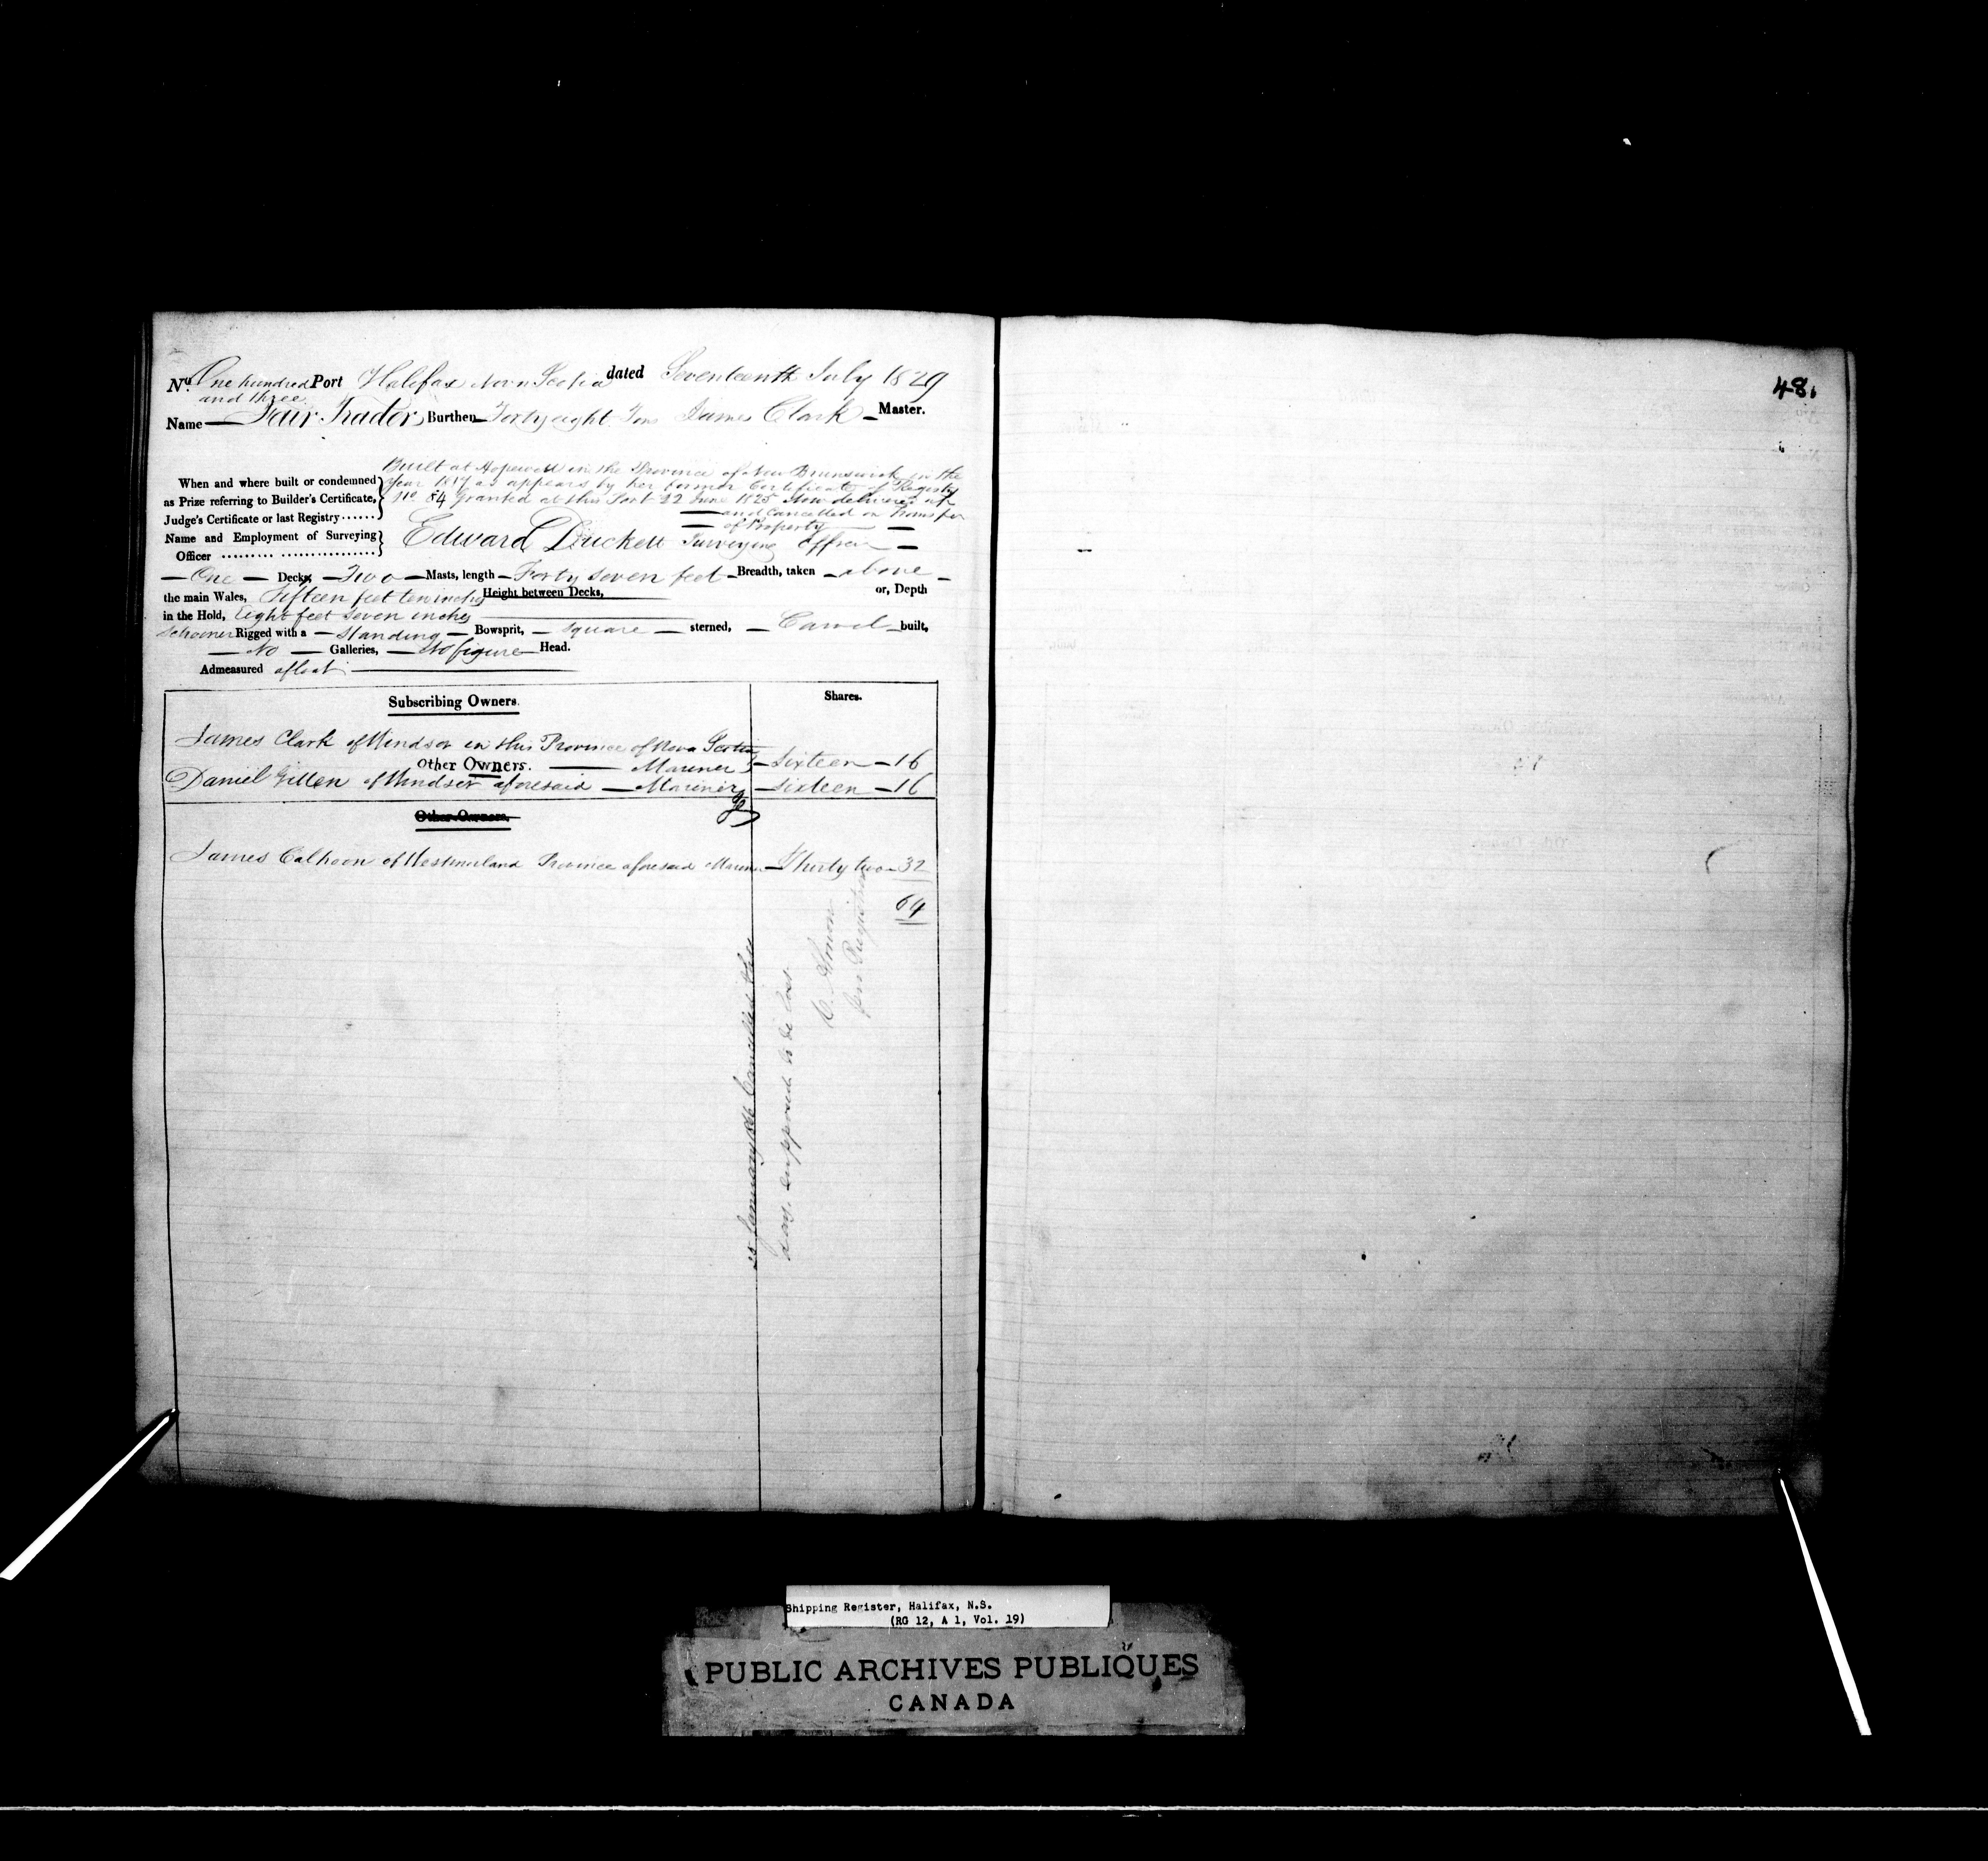 No. One hundred Port Halifax Nova Scotia dated Seventeenth July 1829
and three
Name — Fair Trader Burthen Forty eight Tons James Clark — Master.
48.
Built at Hopewell in the Province of New Brunswick in the
When and where built or condemned year 1817 as appears by her former Certificate of Registry
as Prize referring to Builder's Certificate, No. 84 granted at this Port 22 June 1825 Now delivered up
Judge's Certificate or last Registry ...... — and Cancelled on Transfer
— of Property —
Name and Employment of Surveying Edward Duckett Surveying Officer —
Officer
— One — Decks — Two — Masts, length — Forty seven feet — Breadth, taken — above —
the main Wales, Fifteen feet ten inches Height between Decks, or, Depth
in the Hold, Eight feet seven inches
Schooner Rigged with a — standing — Bowsprit, — square — sterned, — Carvel built,
— No — Galleries, — No figure — Head.
Admeasured afloat
Subscribing Owners. Shares.
James Clark of Windsor in this Province of Nova Scotia
Other Owners. — Mariner — Sixteen — 16
Daniel of Windsor aforesaid — Mariner — Sixteen — 16
Other Owners.
James Calhoon of Westmorland Province aforesaid Mariner — Thirty two — 32
64
January Cancelled this
day, supposed to be lost.
Shipping Register, Halifax, N.S.
(RG 12, A 1, Vol. 19)
PUBLIC ARCHIVES PUBLIQUES
CANADA